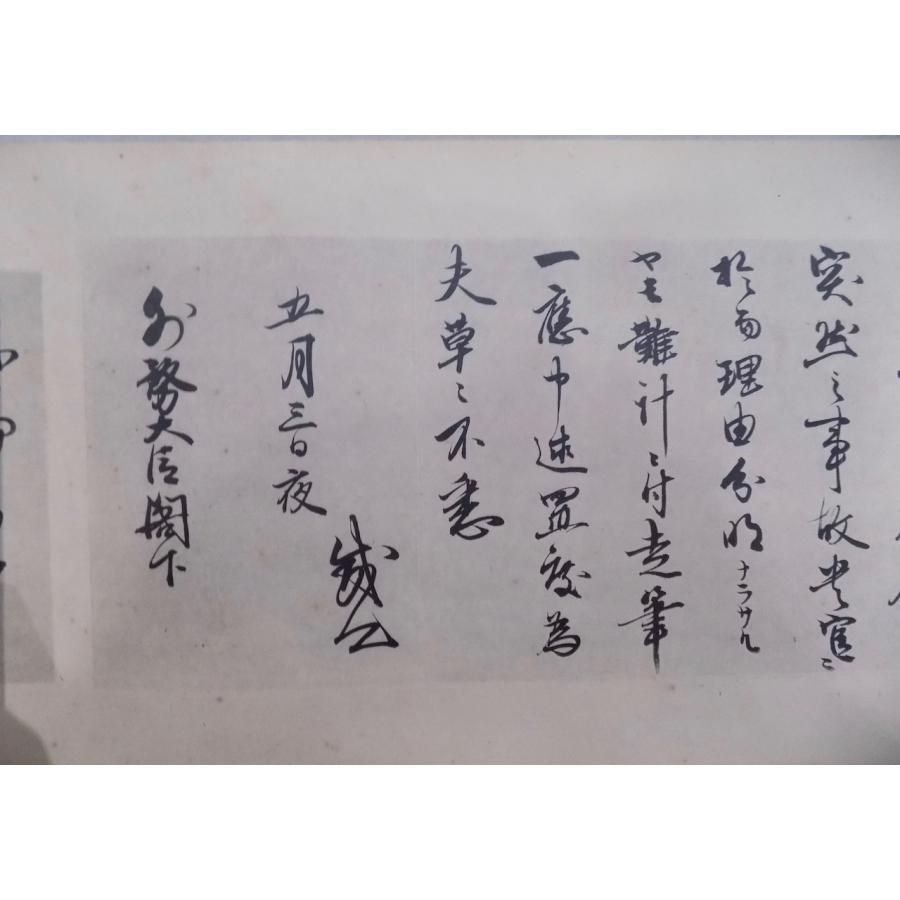 突然之事故貴官ニ
於而理由分明ナラサル
ヤモ難計ニ付走筆
一應申述置度為
夫草々不悉
五月三日夜
外務大臣閣下